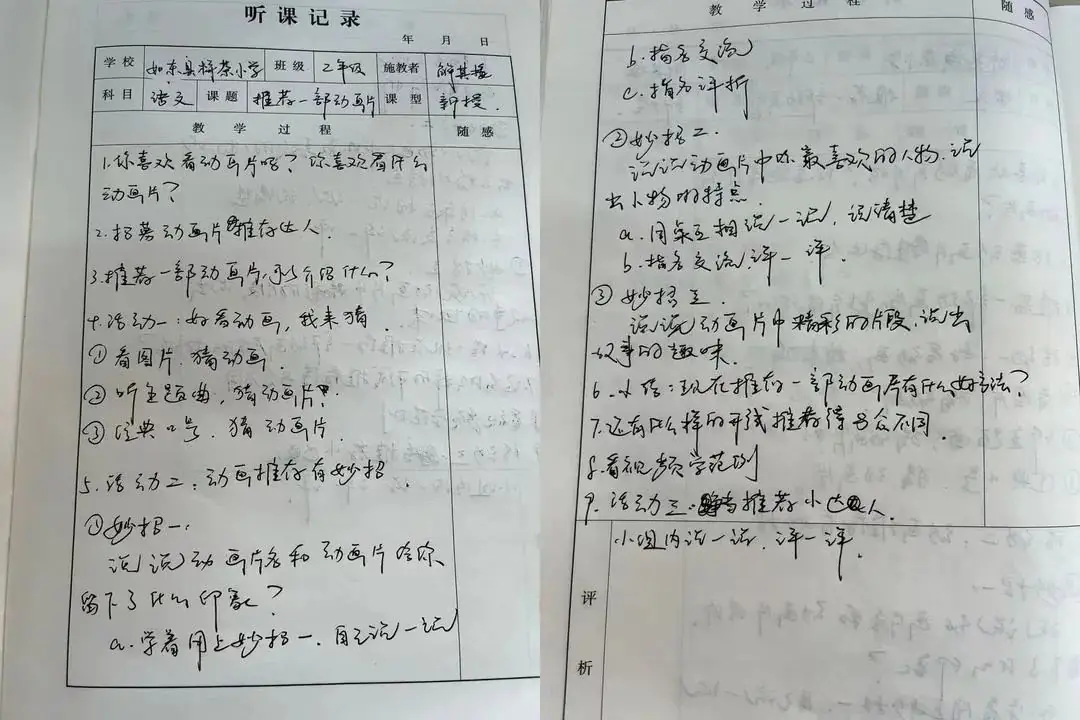 听课记录
年 月 日
学校 如东县栟茶小学 班级 2年级 施教者
科目 语文 课题 推荐一部动画片 课型 新授.
教学过程 随感
1.你喜欢看动画片吗？你喜欢看什么
动画片？
2.招募动画片推荐达人.
3.推荐一部动画片,可以介绍什么？
4.活动一：好看动画,我来猜.
①看图片.猜动画.
②听主题曲,猜动画片.
③经典口号.猜动画片.
5.活动二：动画推荐有妙招.
①妙招一：
说说动画片名和动画片给你
留下了什么印象？
a.学着用上妙招一.自己说一说
教学过程 随感
b.指名交流
c.指名评析
②妙招二.
说说动画片中你最喜欢的人物.说
出人物的特点.
a.同桌互相说一说,说清楚
b.指名交流,评一评.
③妙招三.
说说动画片中精彩的片段,说出
故事的趣味.
6.小结：现在推荐一部动画片有什么好方法？
7.还有什么样的开头推荐得与众不同.
8.看视频学范例
9.活动三.争当推荐小达人.
小组内说一说.评一评.
评
析